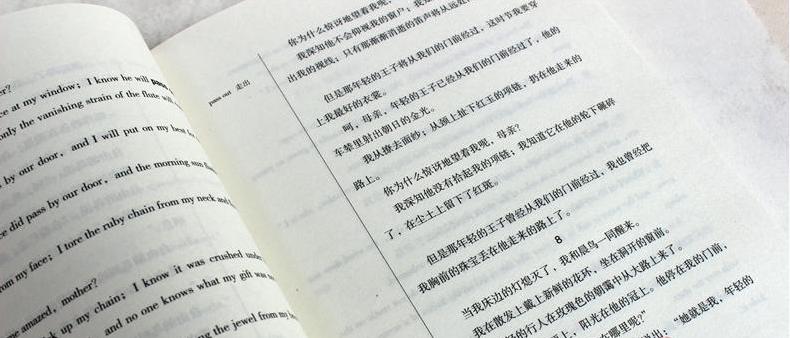 er?
ce at my window; I know he will pass
only the vanishing strain of the flute will
by our door, and I will put on my best
ce did pass by our door, and the morning sun
from my face; I tore the ruby chain from my neck and
me amazed, mother?
k up my chain; I know it was crushed under
and no one knows what my gift was
the jewel from my
pass out 走出
你为什么惊讶地望着我呢,
我深知他不会仰视我的窗户;我
出我的视线;只有那渐渐消逝的笛声将从远处
但是那年轻的王子将从我们的门前经过,这时节我要穿
上我最好的衣裳。
呵,母亲,年轻的王子已经从我们的门前经过了,他的
车辇里射出朝日的金光。
我从撩去面纱;从颈上扯下红玉的项链,扔在他走来的
路上。
你为什么惊讶地望着我呢,母亲?
我深知他没有拾起我的项链;我知道它在他的轮下碾碎
了,在尘土上留下了红斑。
但是那年轻的王子曾经从我们的门前经过,我也曾经把
我胸前的珠宝丢在他走来的路上了。
8
当我床边的灯熄灭了,我和晨鸟一同醒来。
我在散发上戴上新鲜的花环,坐在洞开的窗前。
的行人在玫瑰色的朝霭中从大路上来了。
上,阳光在他的冠上。他停在我的门前,
在哪里呢?”
出:“她就是我,年轻的